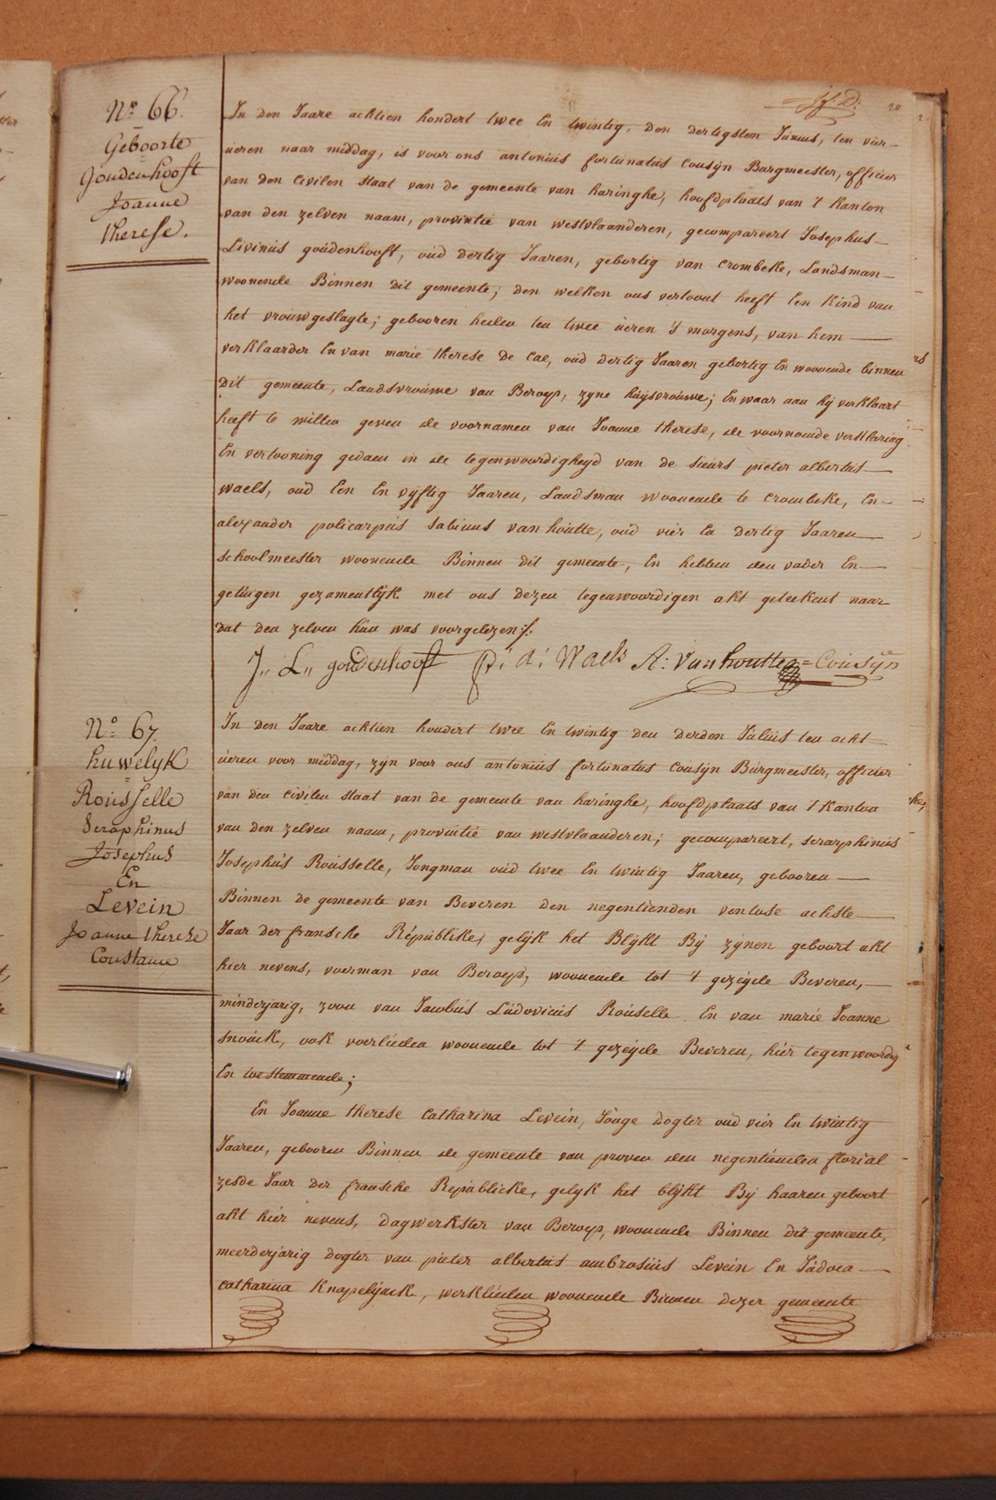 20
N.º 66.
Geboorte
goudenhooft
Joanne
therese.
In den Jaare achtien hondert twee En twintig, den dertigsten Junius, ten vier-
úeren naar middag, is voor ons antoniús fortunatus Cousÿn Burgmeester, officier
van den Civilen Staat van de gemeente van haringhe, hoofdplaats van 't Kanton
van den zelven naam, provintie van westvlaanderen, gecompareert Josephus
Liviniús goúdenhooft, oúd dertig Jaaren, gebortig van Crombeke, Landsman
woonende Binnen dit gemeente; den welken ons vertoont heeft Een kind van
het vrouwgeslagte; gebooren heden ten twee úeren 's morgens, van hem
verklaarder En van marie therese De Cae, oud dertig Jaaren gebortig En woonende binnen
dit gemeente, Landsvrouwe van Beroep, zyne húÿsvroúwe; En waar aan hÿ verklaart
heeft te willen geven de voornamen van Joanne therese, de voornoemde verklaring
En vertooning gedaen in de tegenwoordigheyd van de sieurs pieter albertús
Waels, oud Een En vÿftig Jaaren, Landsman woonende te Crombeke, En
alexander policarpús Sabinus vanhoútte, oúd vier En dertig Jaaren
schoolmeester woonende Binnen dit gemeente, En hebben den vader En
getúigen gezamentlÿk met ons dezen tegenwoordigen akt geteekent naar
dat den zelven hun was voorgelezen ./.
J,, L,, goudenhooft P: a: Waels A: Vanhoutte = Cousÿn
N.º 67
huwelyk
Roússelle
Seraphinus
Josephus
En
Levein
Joanne therese
Constance
In den Jaare achtien hondert twee En twintig den derden Július ten acht
úeren voor middag, zÿn voor ons antoniús fortunatus Cousÿn Búrgmeester, officier
van den Civilen Staat van de gemeente van haringhe, hoofdplaats van 't Kanton
van den zelven naam, provintie van westvlaanderen; gecompareert, serarphinús
Josephús Roússelle, Jongman oúd twee En twintig Jaaren, gebooren
Binnen de gemeente van Beveren den negentienden ventose achste
Jaar der fransche Répúblike, gelÿk het Blÿkt Bÿ zÿnen geboort akt
hier nevens, voerman van Beroep, woonende tot 't gezegde Beveren,
minderjarig, zoon van Jacobús Lúdovicús Roúselle En van marie Joanne
Snoúck, ook voerlieden woonende tot 't gezegde Beveren, hier tegenwoordig
En toestemmende;
En Joanne therese Catharina Levein, Jonge dogter oud vier En twintig
Jaaren, gebooren Binnen de gemeente van proven den negentienden florial
zesde Jaar der fransche Republicke, gelyk het blÿkt Bÿ haaren geboort
akt hier nevens, dagwerkster van Beroep, woonende Binnen dit gemeente,
meerderjarig dogter van pieter albertus ambrosiús Levein En Júdoca
Catharina Knapelÿnck, werklieden woonende Binnen dezer gemeente